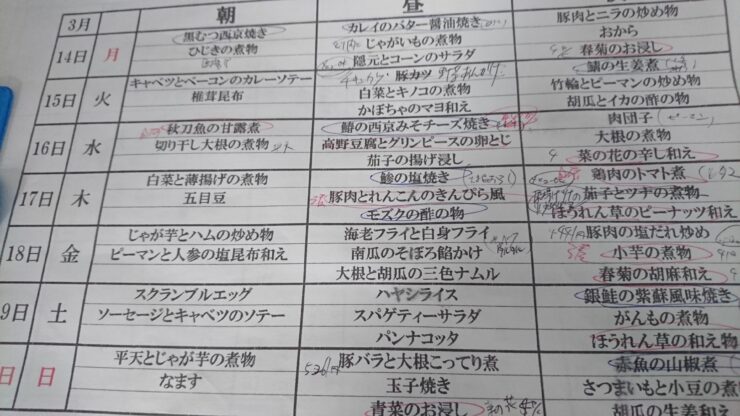 3月
朝
昼
14日 月
黒むつ西京焼き
ひじきの煮物
カレイのバター醤油焼き
じゃがいもの煮物
隠元とコーンのサラダ
豚肉とニラの炒め物
おから
春菊のお浸し
15日 火
キャベツとベーコンのカレーソテー
椎茸昆布
チキンカツ 豚カツ
白菜とキノコの煮物
かぼちゃのマヨ和え
鯖の生姜煮
竹輪とピーマンの炒め物
胡瓜とイカの酢の物
16日 水
秋刀魚の甘露煮
切り干し大根の煮物
鰆の西京みそチーズ焼き
高野豆腐とグリンピースの卵とじ
茄子の揚げ浸し
肉団子(ピーマン)
大根の煮物
菜の花の辛し和え
17日 木
白菜と薄揚げの煮物
五目豆
鯵の塩焼き
豚肉とれんこんのきんぴら風
モズクの酢の物
鶏肉のトマト煮
茄子とツナの煮物
ほうれん草のピーナッツ和え
18日 金
じゃが芋とハムの炒め物
ピーマンと人参の塩昆布和え
海老フライと白身フライ
南瓜のそぼろ餡かけ
大根と胡瓜の三色ナムル
豚肉の塩だれ炒め
小芋の煮物
春菊の胡麻和え
9日 土
スクランブルエッグ
ソーセージとキャベツのソテー
ハヤシライス
スパゲティーサラダ
パンナコッタ
銀鮭の紫蘇風味焼き
がんもの煮物
ほうれん草の和え物
日 日
平天とじゃが芋の煮物
なます
豚バラと大根こってり煮
玉子焼き
青菜のお浸し
赤魚の山椒煮
さつまいもと小豆の煮
胡瓜の生姜和え